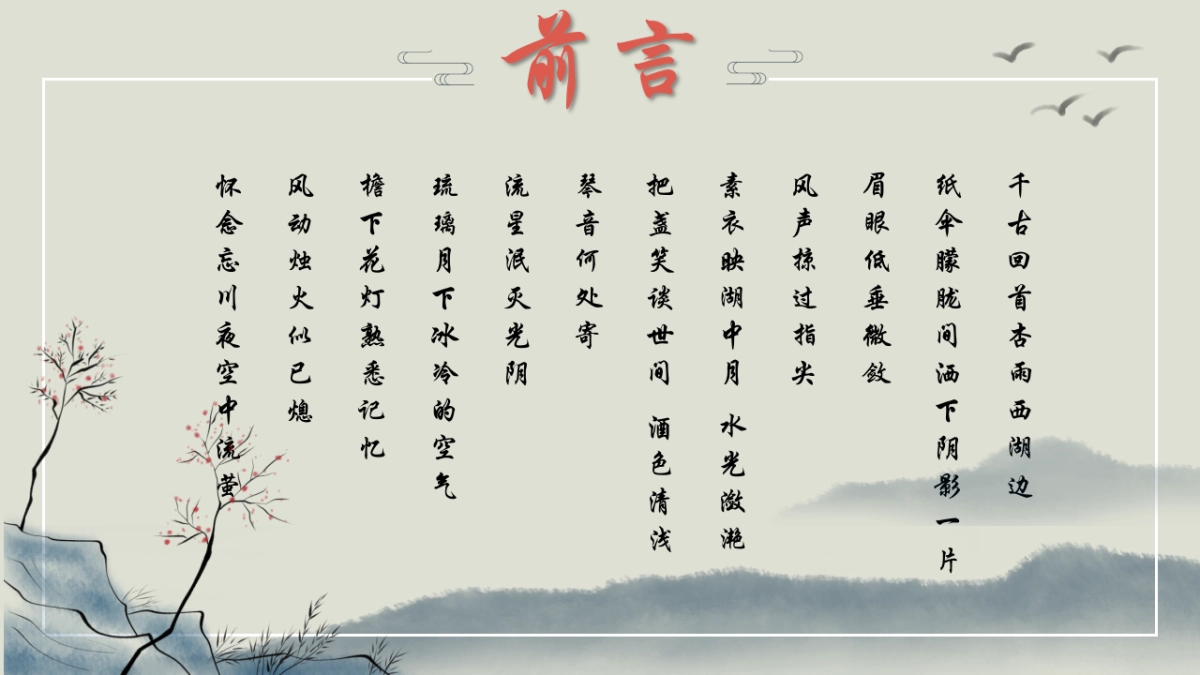 前言
千古回首杏雨西湖边
纸伞朦胧间洒下阴影一片
眉眼低垂微敛
风声掠过指尖
素衣映湖中月 水光潋滟
把盏笑谈世间 酒色清浅
琴音何处寄
流星泯灭光阴
琉璃月下冰冷的空气
檐下花灯熟悉记忆
风动烛火似已熄
怀念忘川夜空中流萤